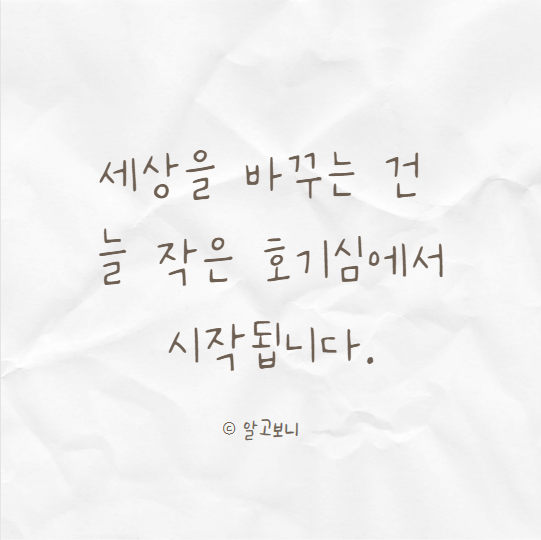 세상을 바꾸는 건
늘 작은 호기심에서
시작됩니다.
© 알고보니